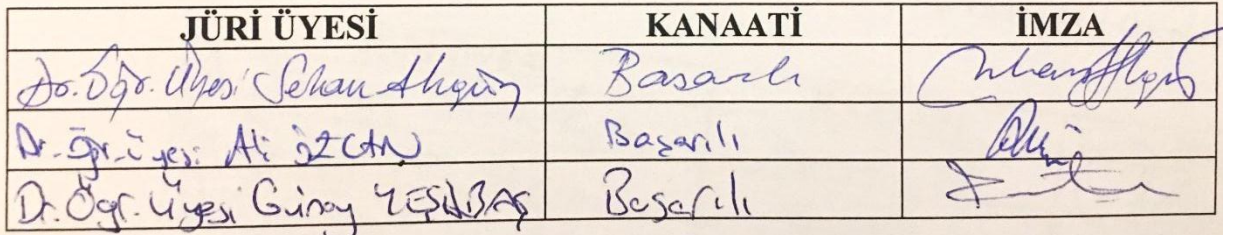 JÜRİ ÜYESİ KANAATİ İMZA
Dr. Öğr. Üyesi Akgün Başarılı
Dr. Öğr. Üyesi Ali ÖZCAN Başarılı
Dr. Öğr. Üyesi Günay YEŞİLBAŞ Başarılı